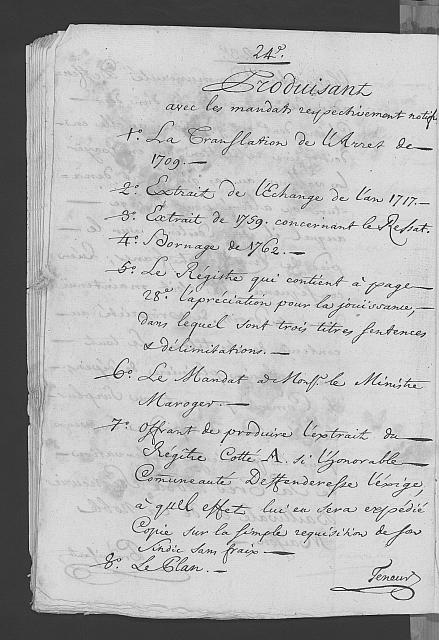 24°.
Produisant
avec les mandats respectivement notifs
1° La Translation de l'Arret de
1709. —
2° Extrait de l'Echange de l'an 1717. —
3° Extrait de 1759. concernant le Ressat.
4° Bornage de 1762. —
5° Le Régistre qui contient à page
28e l'apréciation pour la jouissance,
dans lequel sont trois titres sentences
& délimitations. —
6° Le Mandat a Monsr. le Ministre
Maroger. —
7° Offrant de produire l'extrait du
Regître Cotté A. si l'honorable
Comuneauté Deffenderesse l'exige,
à quel effet, lui en sera expédié
Copie sur la simple requisition de son
sindic sans fraix —
8° Le Plan. —
Teneur